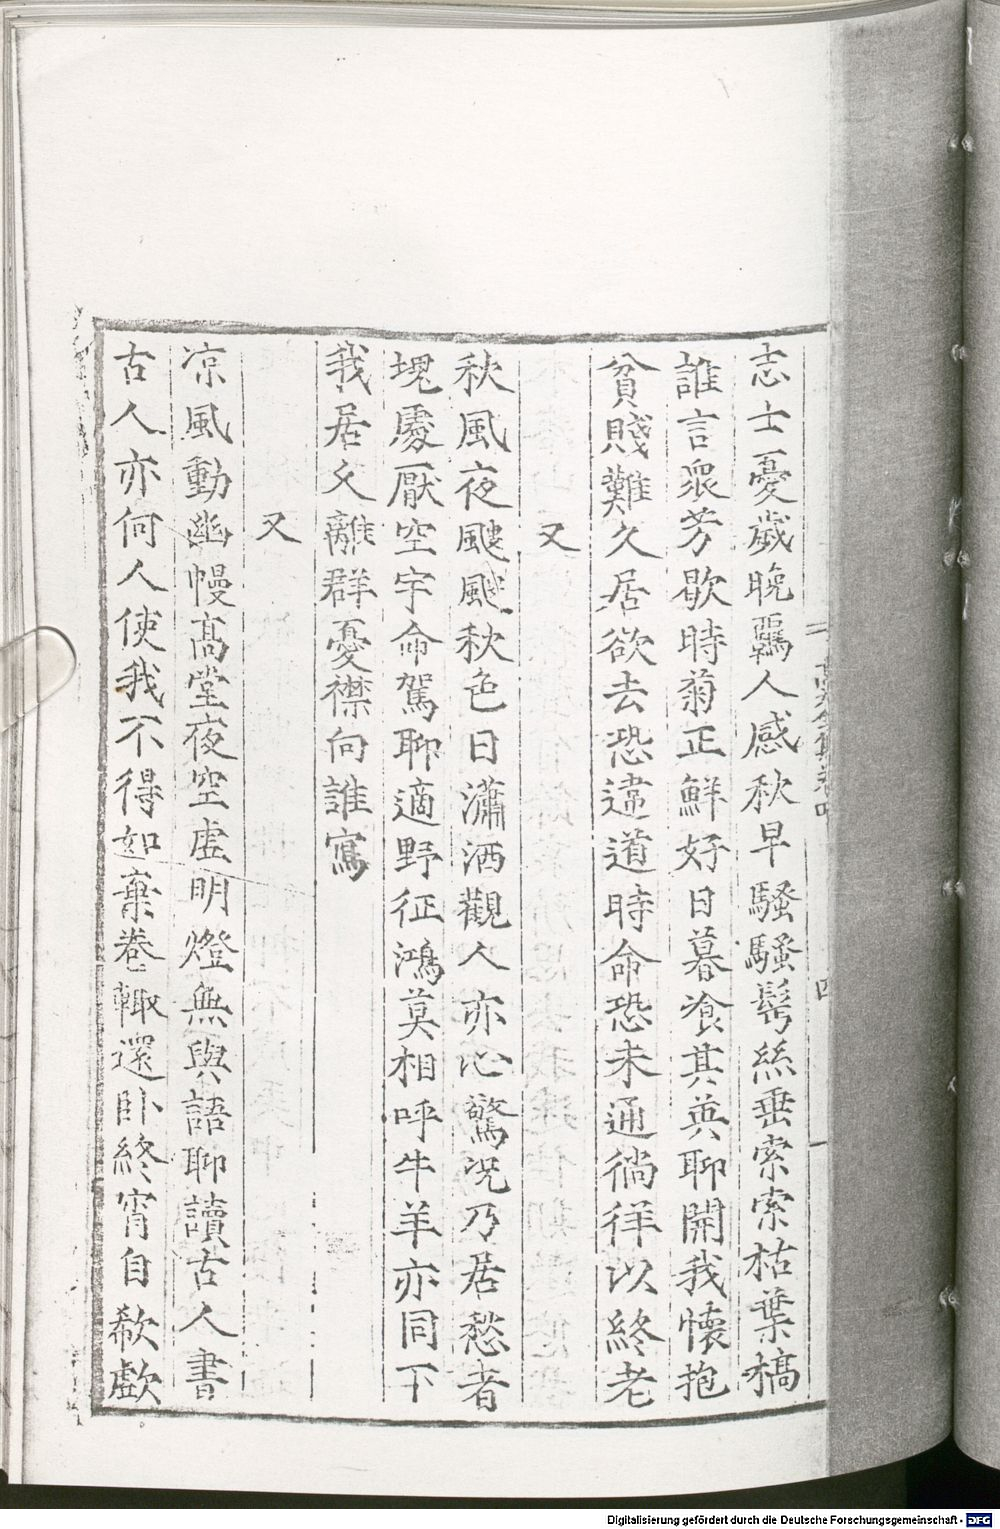 志士憂歲晚羈人感秋早騷騷髩絲垂索索枯葉槁
誰言衆芳歇時菊正鮮好日暮飡其英聊開我懷抱
貧賤難久居欲去恐違道時命恐未通徜徉以終老
又
秋風夜颼颼秋色日瀟洒觀人亦心驚况乃居愁者
塊處厭空宇命駕聊適野征鴻莫相呼牛羊亦同下
我居久離群憂襟向誰寫
又
凉風動幽幔高堂夜空虛明燈無與語聊讀古人書
古人亦何人使我不得如棄卷輙還卧終宵自欷歔
四
Digitalisierung gefördert durch die Deutsche Forschungsgemeinschaft - DFG